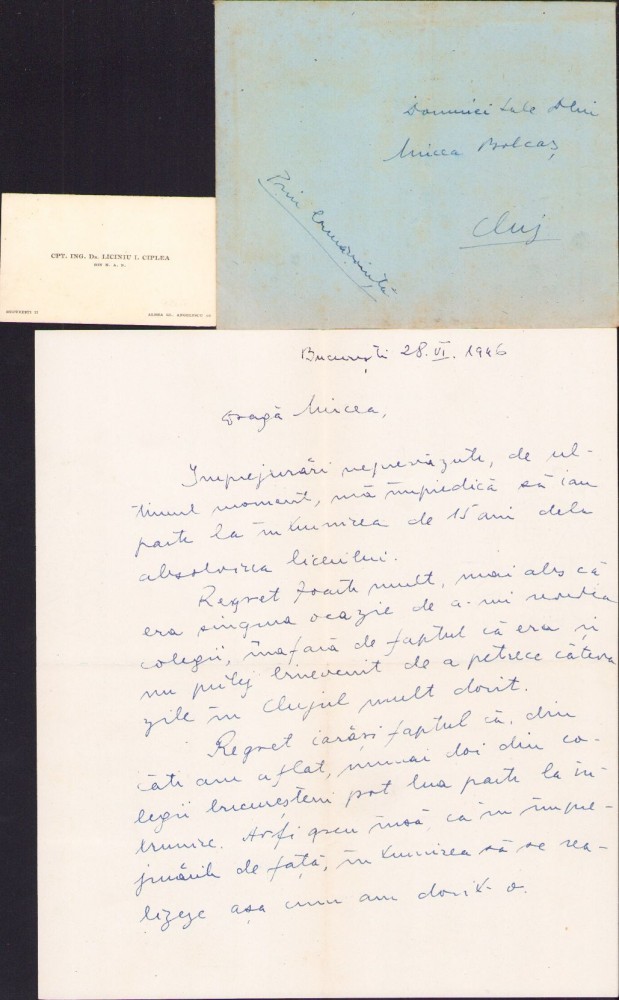 Domniei Sale Dlui
Mircea Bolcaș
Cluj
Prin
CPT. ING. Dr. LICINIU I. CIPLEA
DIN
BUCUREȘTI
București 28.VI. 1946
Dragă Mircea,
Imprejurări neprevăzute, de ul-
timul moment, mă împiedică să iau
parte la întrunirea de 15 ani dela
absolvirea liceului.
Regret foarte mult, mai ales că
era singura ocazie de a-mi revedea
colegii, înafară de faptul că era și
un prilej binevenit de a petrece câteva
zile în Clujul mult dorit.
Regret iarăși faptul că, din
câte am aflat, numai doi din co-
legii bucureșteni pot lua parte la în-
trunire. Ar fi greu însă, ca în împre-
jurările de față, întrunirea să se rea-
lizeze așa cum am dorit-o.